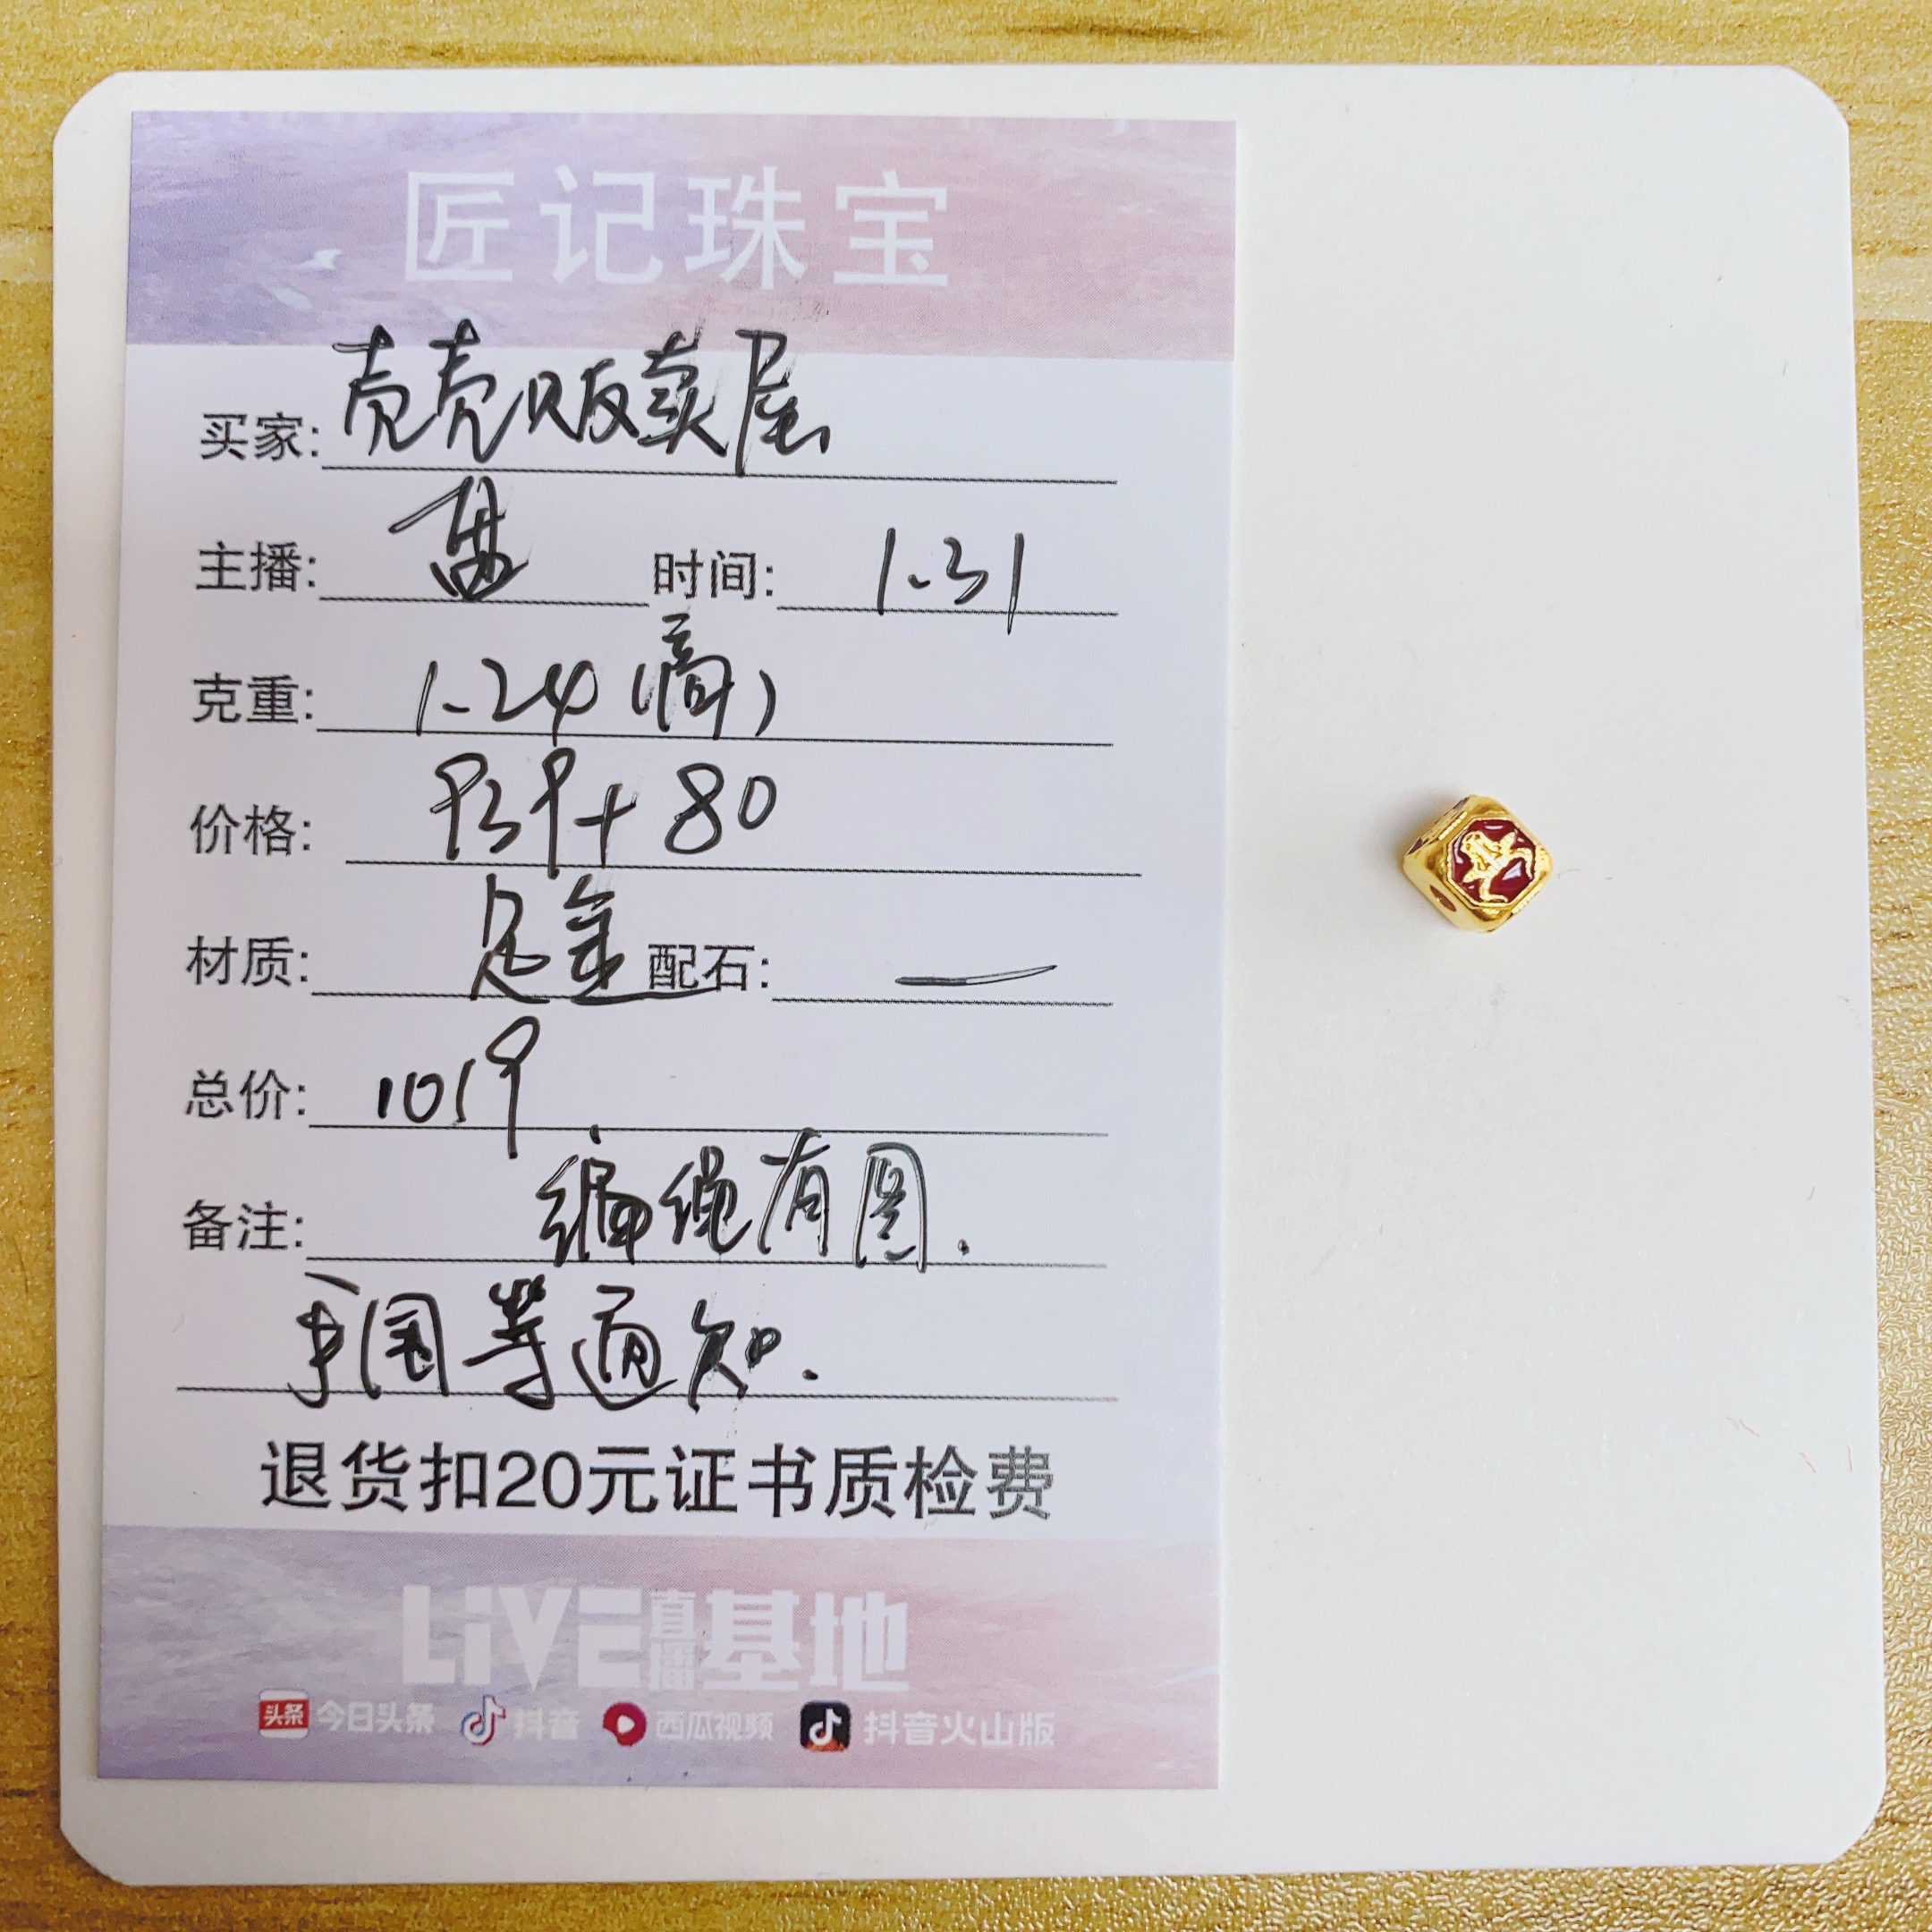 匠记珠宝
买家: 壳壳贩卖屋
主播: 时间: 1.31
克重: 1.24
价格: 939+80
材质: 足金 配石: —
总价: 1019
备注: 编绳有图.
手围等通知.
退货扣20元证书质检费
LIVE直播基地
头条 今日头条 抖音 西瓜视频 抖音火山版